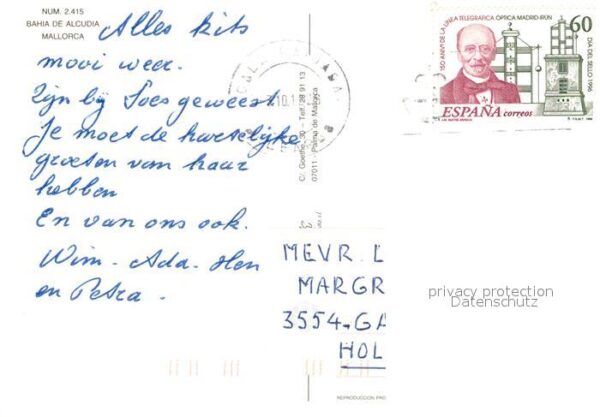 NUM. 2.415
BAHIA DE ALCUDIA
MALLORCA
Alles kits
mooi weer.
Zijn bij Toes geweest
Je moet de hartelijke
groeten van haar
hebben
En van ons ook.
Wim - Ada - Hen
en Petra.
C/. Goethe, 30 - Telf. 28 91 13
07011 - Palma de Mallorca
150 ANIV DE LA LINEA TELEGRAFICA OPTICA MADRID-IRUN
60
DIA DEL SELLO 1996
ESPAÑA correos
MEVR. L
MARGR
3554-GA
HOL
privacy protection
Datenschutz
REPRODUCCION PRO